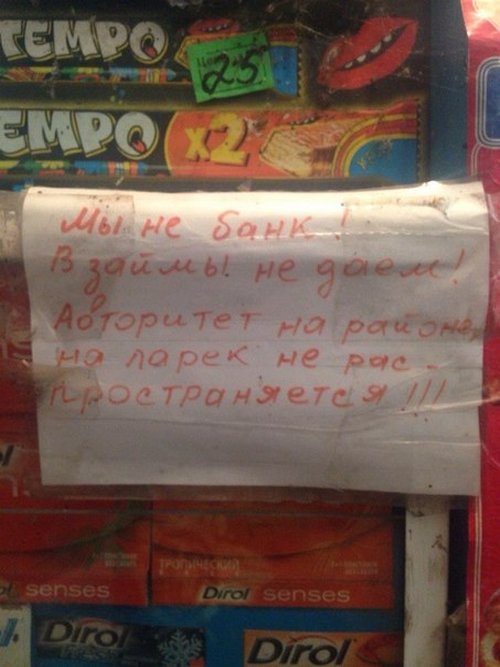 TEMPO
25
EMPO x2
Мы не банк!
В займы не даем!
Авторитет на районе,
на ларек не рас-
пространяется!!!
ТРОПИЧЕСКИЙ
Dirol senses
Dirol senses
Dirol
Dirol